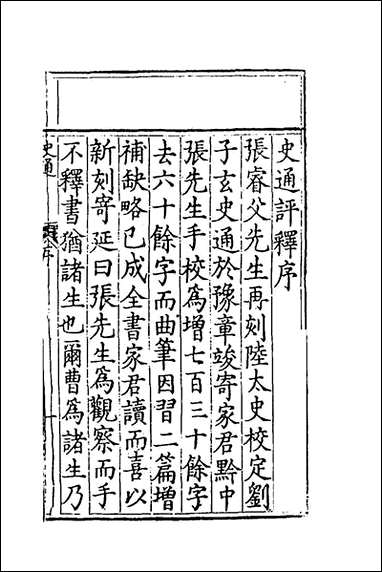 史通評釋序
張睿父先生再刻陸太史校定劉
子玄史通於豫章竣寄家君黔中
張先生手校為增七百三十餘字
去六十餘字而曲筆因習二篇增
補缺略已成全書家君讀而喜以
新刻寄延曰張先生為觀察而手
不釋書猶諸生也爾曹為諸生乃
史通
序
一